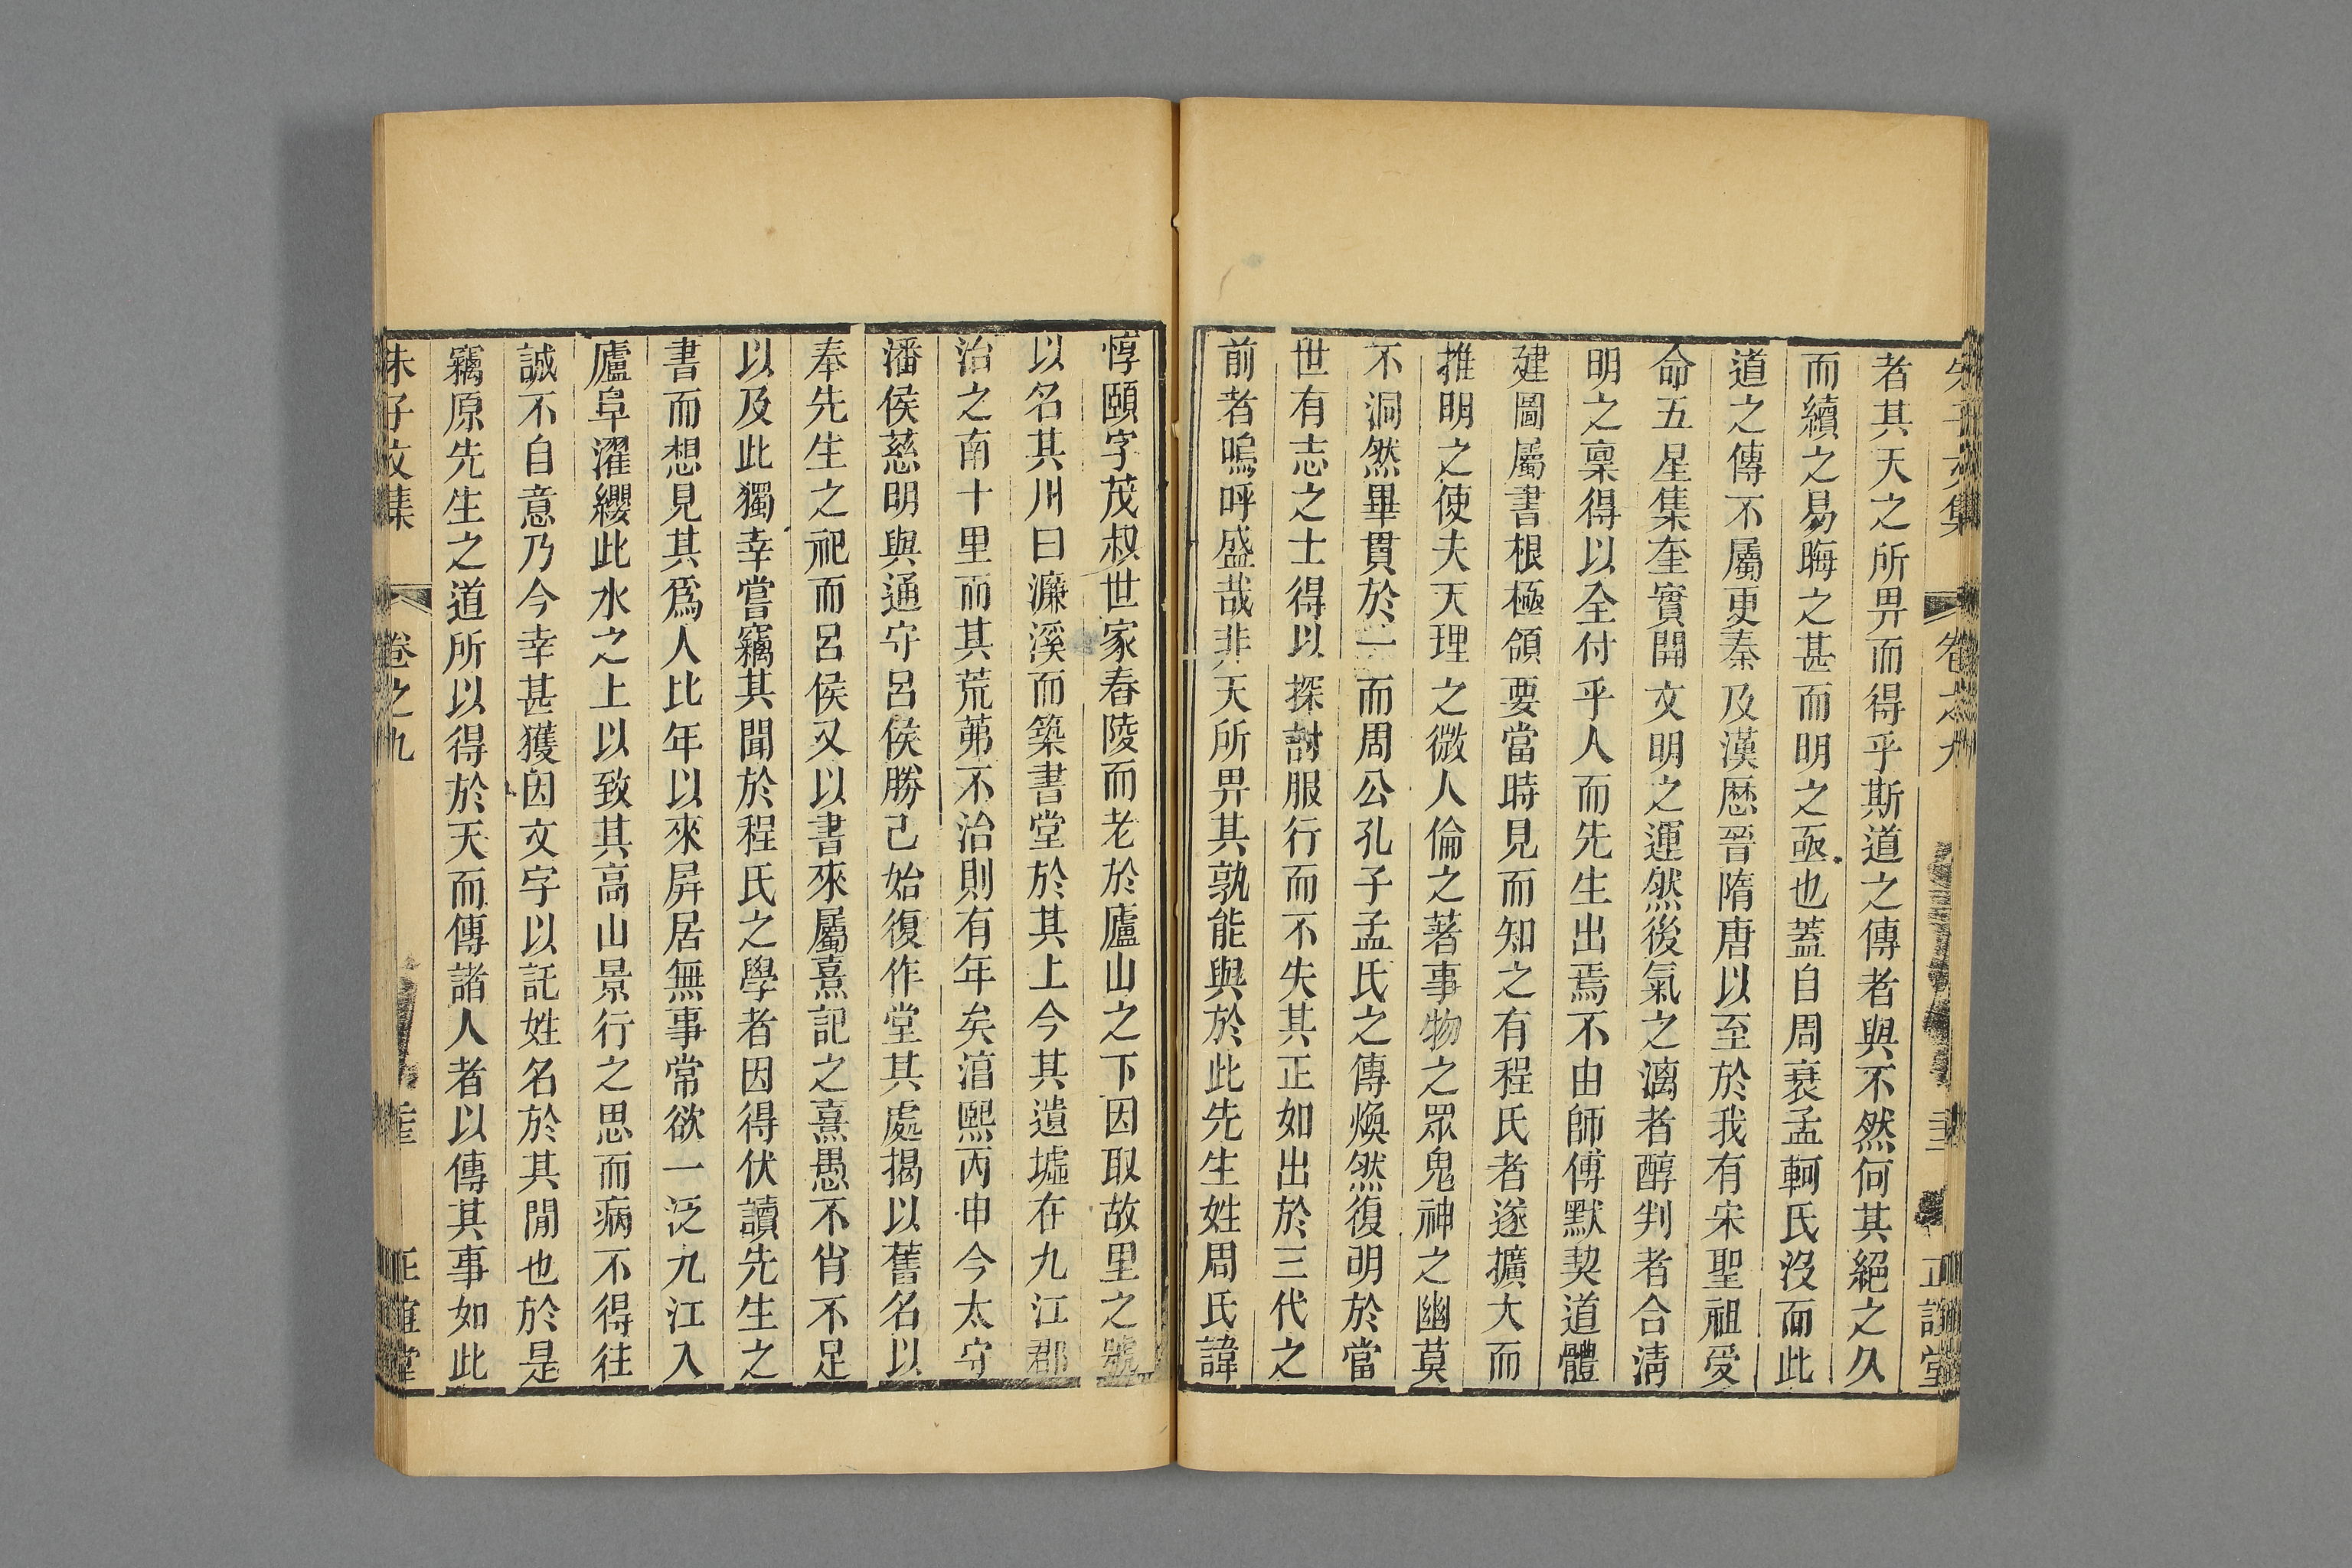 朱子文集
卷之九
正誼堂
者其天之所畀而得乎斯道之傳者與不然何其絕之久
而續之易晦之甚而明之亟也蓋自周衰孟軻氏沒而此
道之傳不屬更秦及漢歷晉隋唐以至於我有宋聖祖受
命五星集奎實開文明之運然後氣之漓者醇判者合清
明之稟得以全付乎人而先生出焉不由師傅默契道體
建圖屬書根極領要當時見而知之有程氏者遂擴大而
推明之使夫天理之微人倫之著事物之眾鬼神之幽莫
不洞然畢貫於一而周公孔子孟氏之傳煥然復明於當
世有志之士得以探討服行而不失其正如出於三代之
前者嗚呼盛哉非天所畀其孰能與於此先生姓周氏諱
惇頤字茂叔世家舂陵而老於廬山之下因取故里之號
以名其川曰濂溪而築書堂於其上今其遺墟在九江郡
治之南十里而其荒茀不治則有年矣淳熙丙申今太守
潘侯慈明與通守呂侯勝己始復作堂其處揭以舊名以
奉先生之祀而呂侯又以書來屬熹記之熹愚不肖不足
以及此獨幸嘗竊其聞於程氏之學者因得伏讀先生之
書而想見其爲人比年以來屏居無事常欲一泛九江入
廬阜濯纓此水之上以致其高山景行之思而病不得往
誠不自意乃今幸甚獲因文字以託姓名於其閒也於是
竊原先生之道所以得於天而傳諸人者以傳其事如此
朱子文集
卷之九
正誼堂